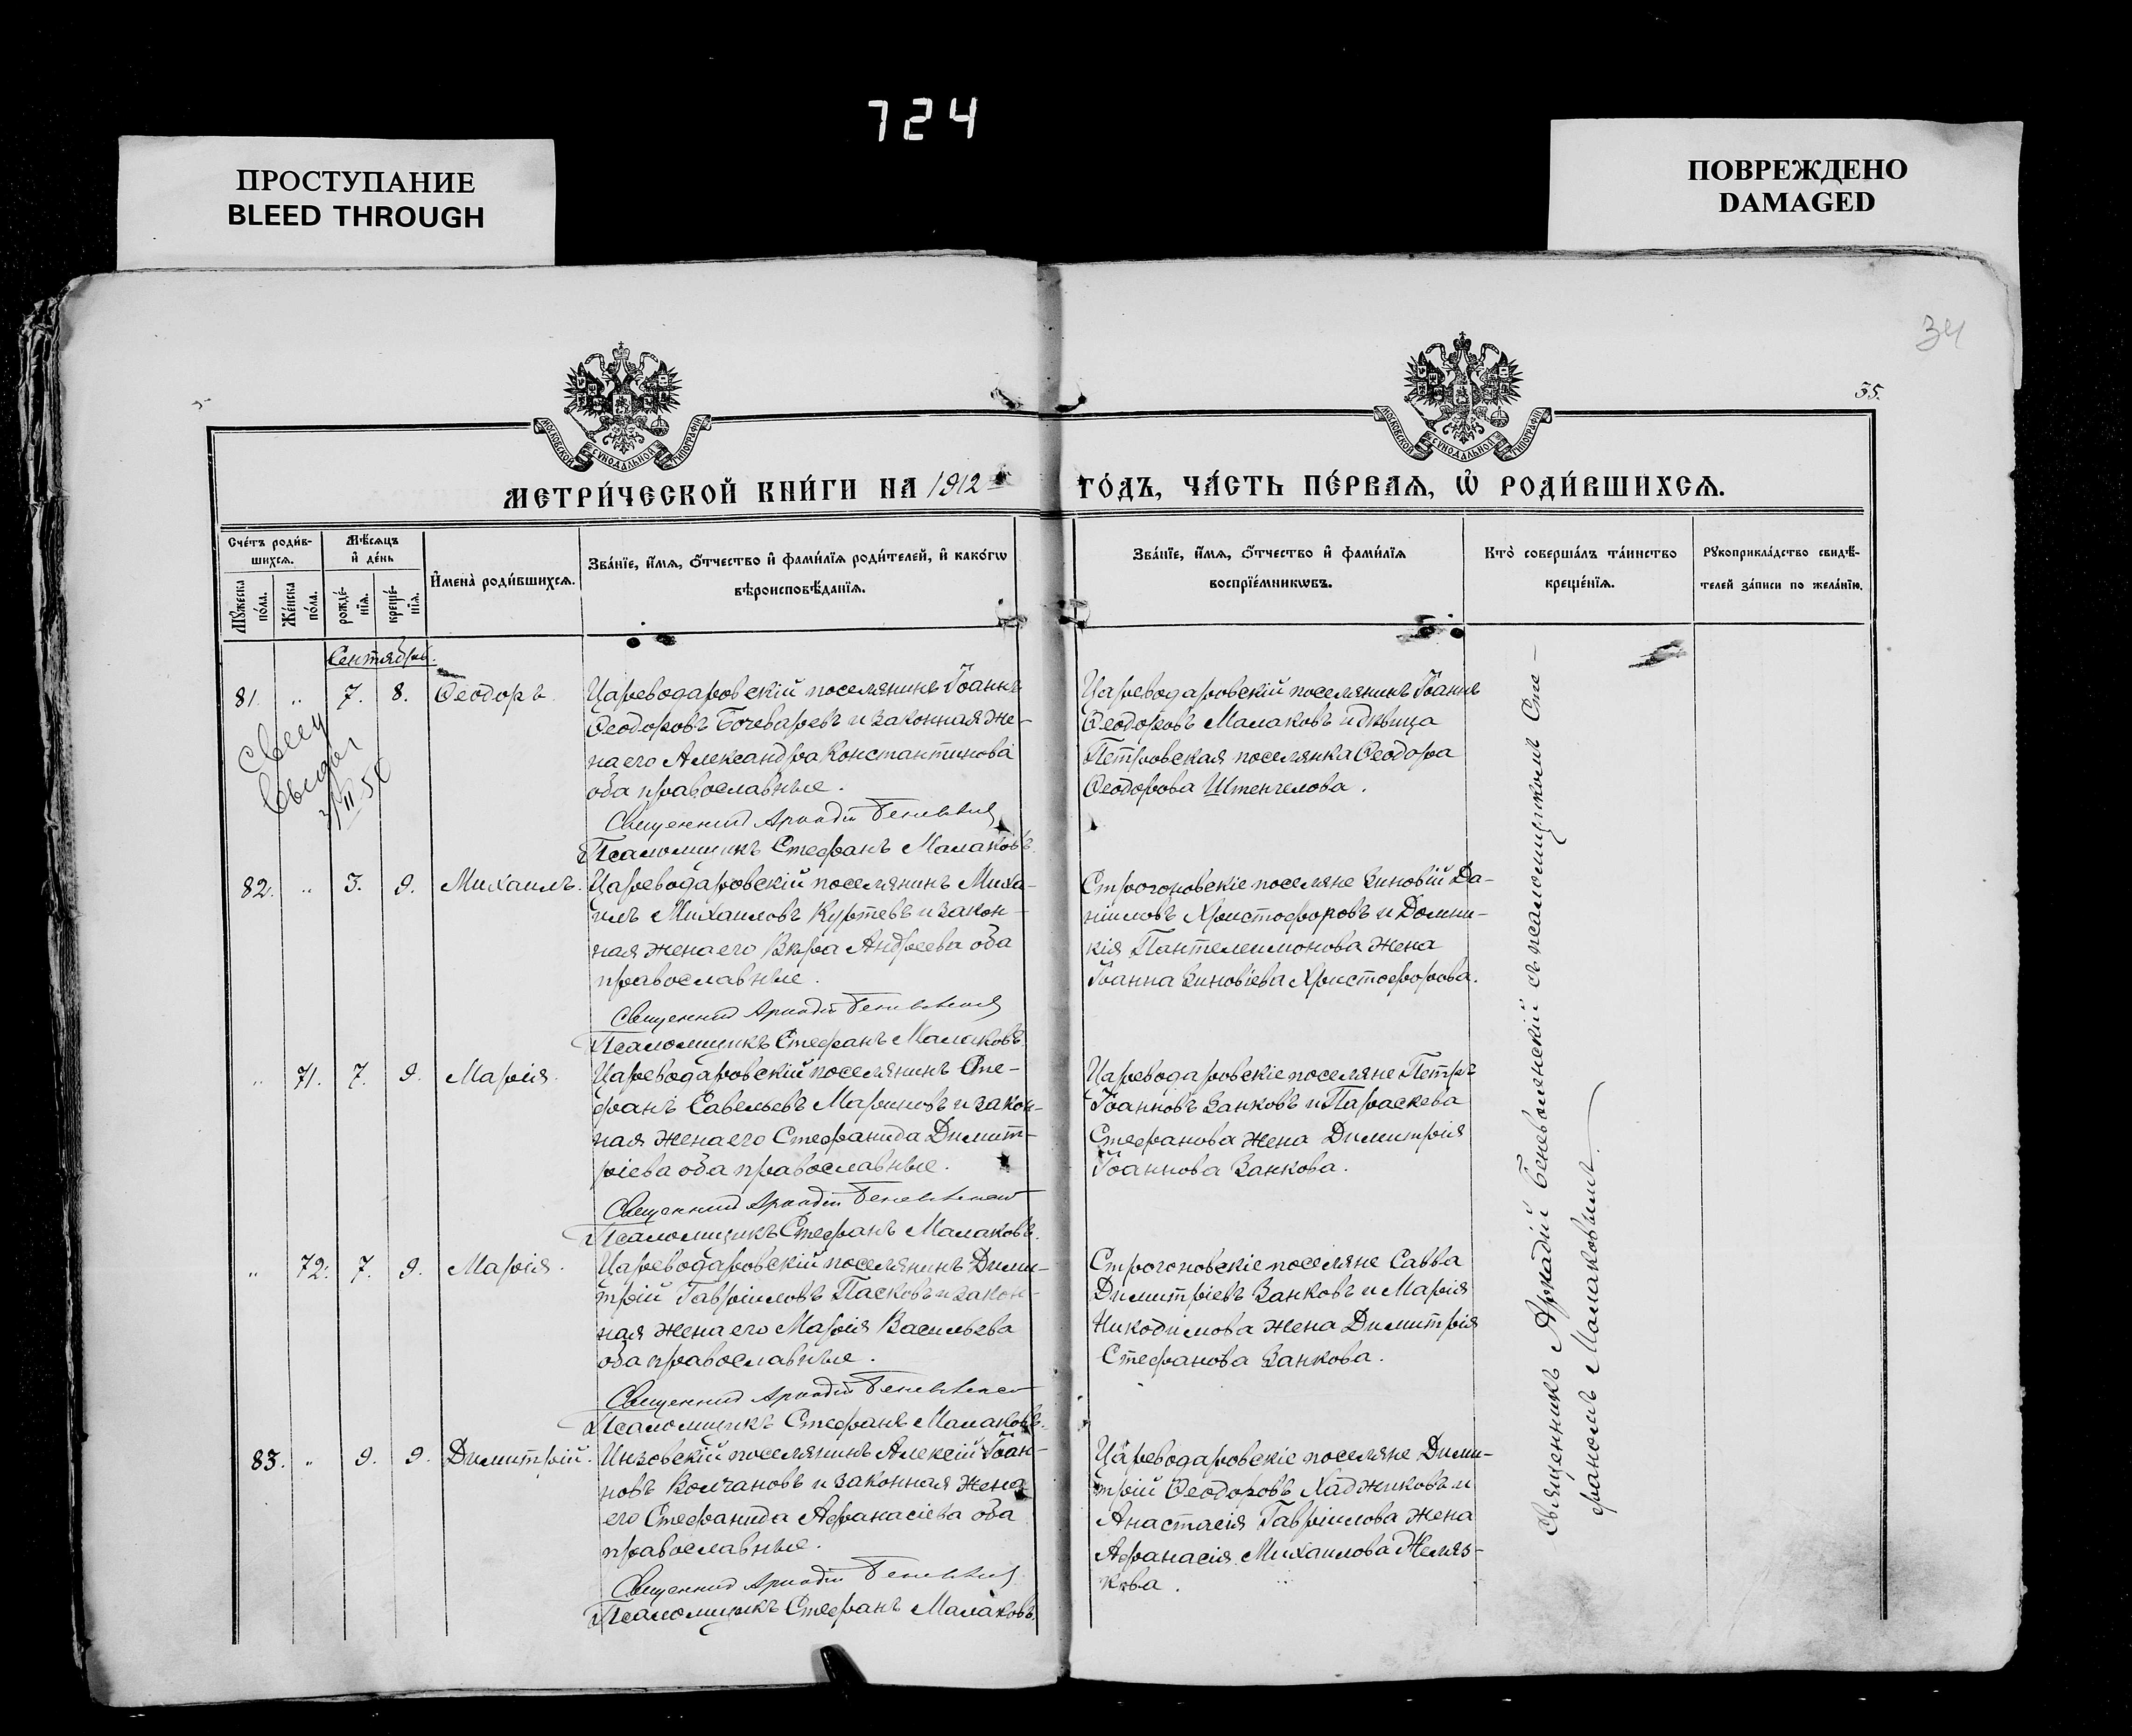 724
ПРОСТУПАНИЕ
BLEED THROUGH
ПОВРЕЖДЕНО
DAMAGED
34
35.
МОСКОВСКОЙ СѴНОДАЛЬНОЙ ТИПОГРАФІИ
МОСКОВСКОЙ СѴНОДАЛЬНОЙ ТИПОГРАФІИ
МЕТРИ́ЧЕСКОЙ КНИ́ГИ НА 1912
ГО́ДЪ, ЧА́СТЬ ПЕ́РВАѦ, Ѡ҆ РОДИ́ВШИХСѦ.
Сче́тъ роди́в-
шихсѧ.
Мꙋ́жеска по́ла.
Же́нска по́ла.
Мѣ́сѧцъ
и҆ де́нь
рожде́-нїѧ.
креще́-нїѧ.
И҆мена̀ роди́вшихсѧ.
Зва́нїе, и҆́мѧ, ѻ҆́тчество и҆ фами́лїѧ роди́телей, и҆ како́гѡ
вѣроисповѣ́данїѧ.
Зва́нїе, и҆́мѧ, ѻ҆́тчество и҆ фами́лїѧ
воспрїе́мникѡвъ.
Кто̀ соверша́лъ та́инство
креще́нїѧ.
Рꙋкоприкла́дство свидѣ́-
телей за́писи по жела́нїю.
Сентябрь.
81. " 7. 8. Ѳеодоръ.
Цареводаровскій поселянинъ Іоаннъ
Ѳеодоровъ Бочеваревъ и законная же-
на его Александра Константинова
оба православные.
Священникъ Аркадій Беневоленскій
Псаломщикъ Стефанъ Малаковъ.
Цареводаровскій поселянинъ Іоаннъ
Ѳеодоровъ Малаковъ и дѣвица
Петровская поселянка Ѳеодора
Ѳеодорова Штенгелова.
82. " 3. 9. Михаилъ.
Цареводаровскій поселянинъ Миха-
илъ Михаиловъ Куртевъ и закон-
ная жена его Вѣра Андреева оба
православные.
Священникъ Аркадій Беневоленскій
Псаломщикъ Стефанъ Малаковъ.
Строгоновскіе поселяне Зиновій Да-
ніиловъ Христофоровъ и Домни-
кія Пантелеимонова жена
Іоанна Зиновіева Христофорова.
" 71. 7. 9. Марія.
Цареводаровскій поселянинъ Сте-
фанъ Савельевъ Мариновъ и закон-
ная жена его Стефанида Димит-
ріева оба православные.
Священникъ Аркадій Беневоленскій
Псаломщикъ Стефанъ Малаковъ.
Цареводаровскіе поселяне Петръ
Іоанновъ Занковъ и Параскева
Стефанова жена Димитрія
Іоаннова Занкова.
" 72. 7. 9. Марія.
Цареводаровскій поселянинъ Дими-
трій Гавріиловъ Пасковъ и закон-
ная жена его Марія Васильева
оба православные.
Священникъ Аркадій Беневоленскій
Псаломщикъ Стефанъ Малаковъ.
Строгоновскіе поселяне Савва
Димитріевъ Занковъ и Марія
Никодимова жена Димитрія
Стефанова Занкова.
83. " 9. 9. Димитрій.
Инзовскій поселянинъ Алексій Іоан-
новъ Волчановъ и законная жена
его Стефанида Афанасіева оба
православные.
Священникъ Аркадій Беневоленскій
Псаломщикъ Стефанъ Малаковъ.
Цареводаровскіе поселяне Дими-
трій Ѳеодоровъ Хаджиковъ и
Анастасія Гавріилова жена
Афанасія Михаилова Желяз-
кова.
Священникъ Аркадій Беневоленскій съ псаломщикомъ Сте-
фаномъ Малаковымъ.